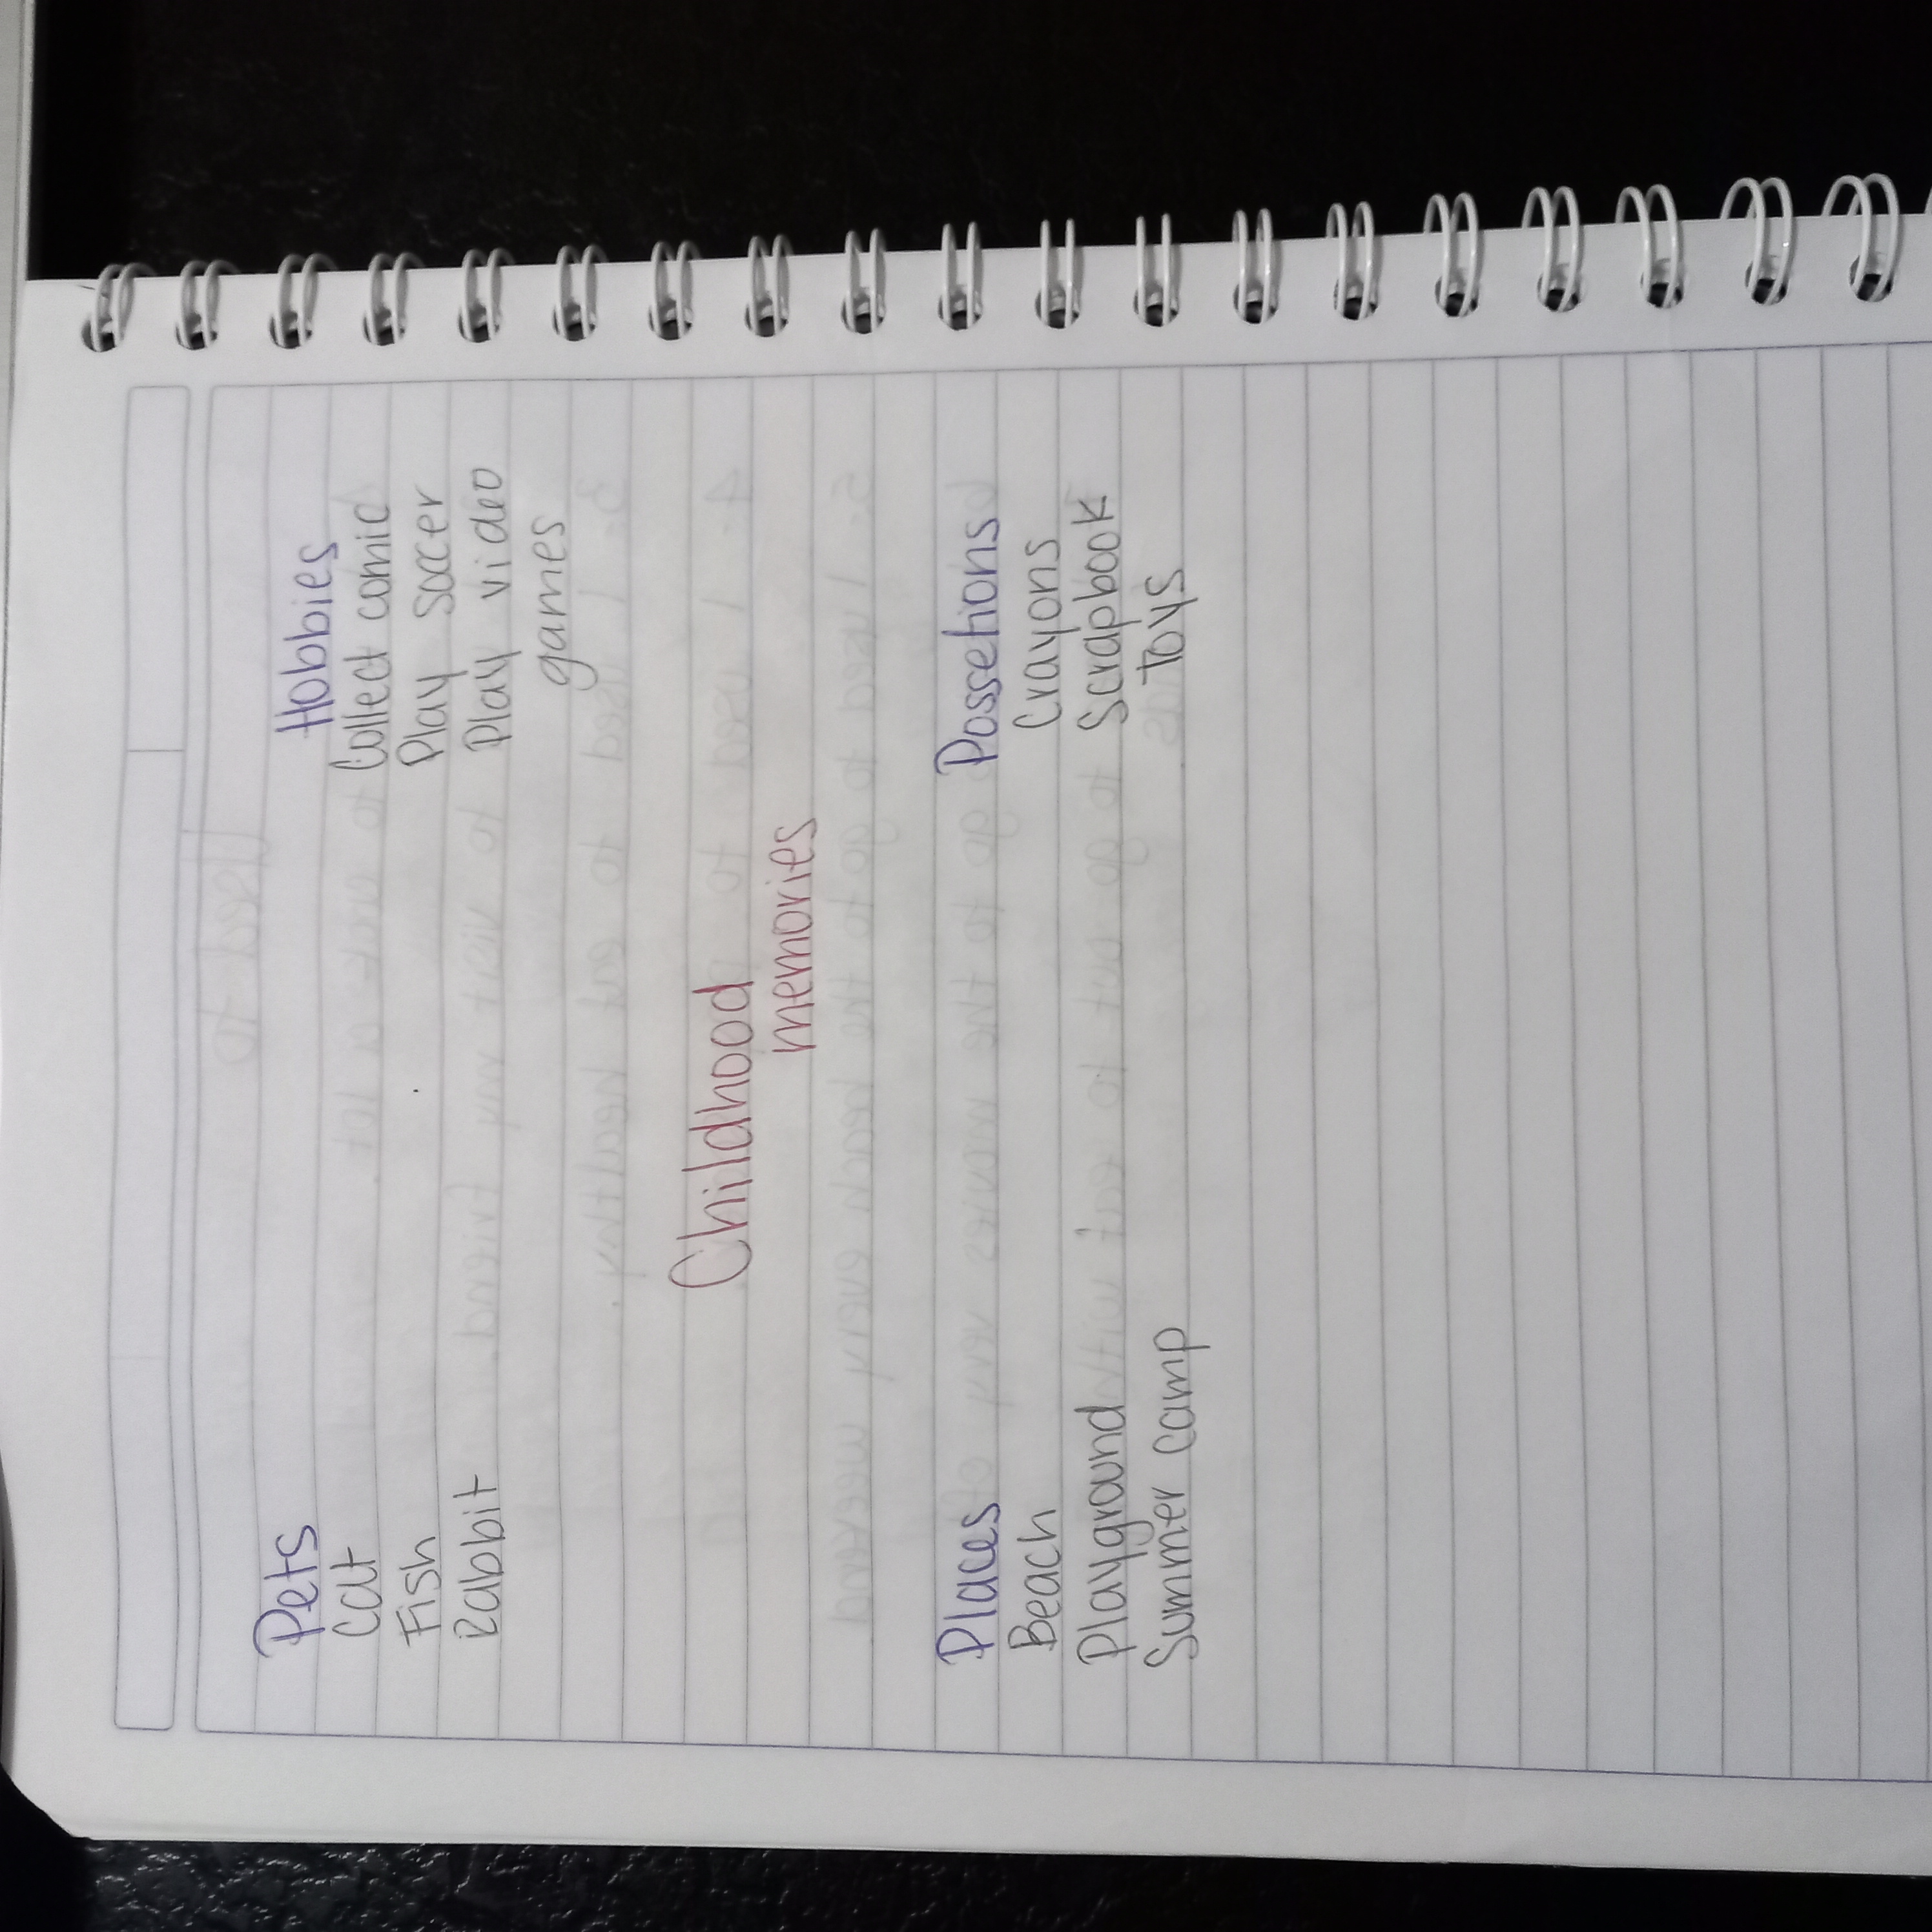 Pets
Cat
Fish
Rabbit
Hobbies
Collect comic
Play soccer
Play video
games
Childhood
memories
Places
Beach
Playground
Summer camp
Possetions
Crayons
Scrapbook
Toys